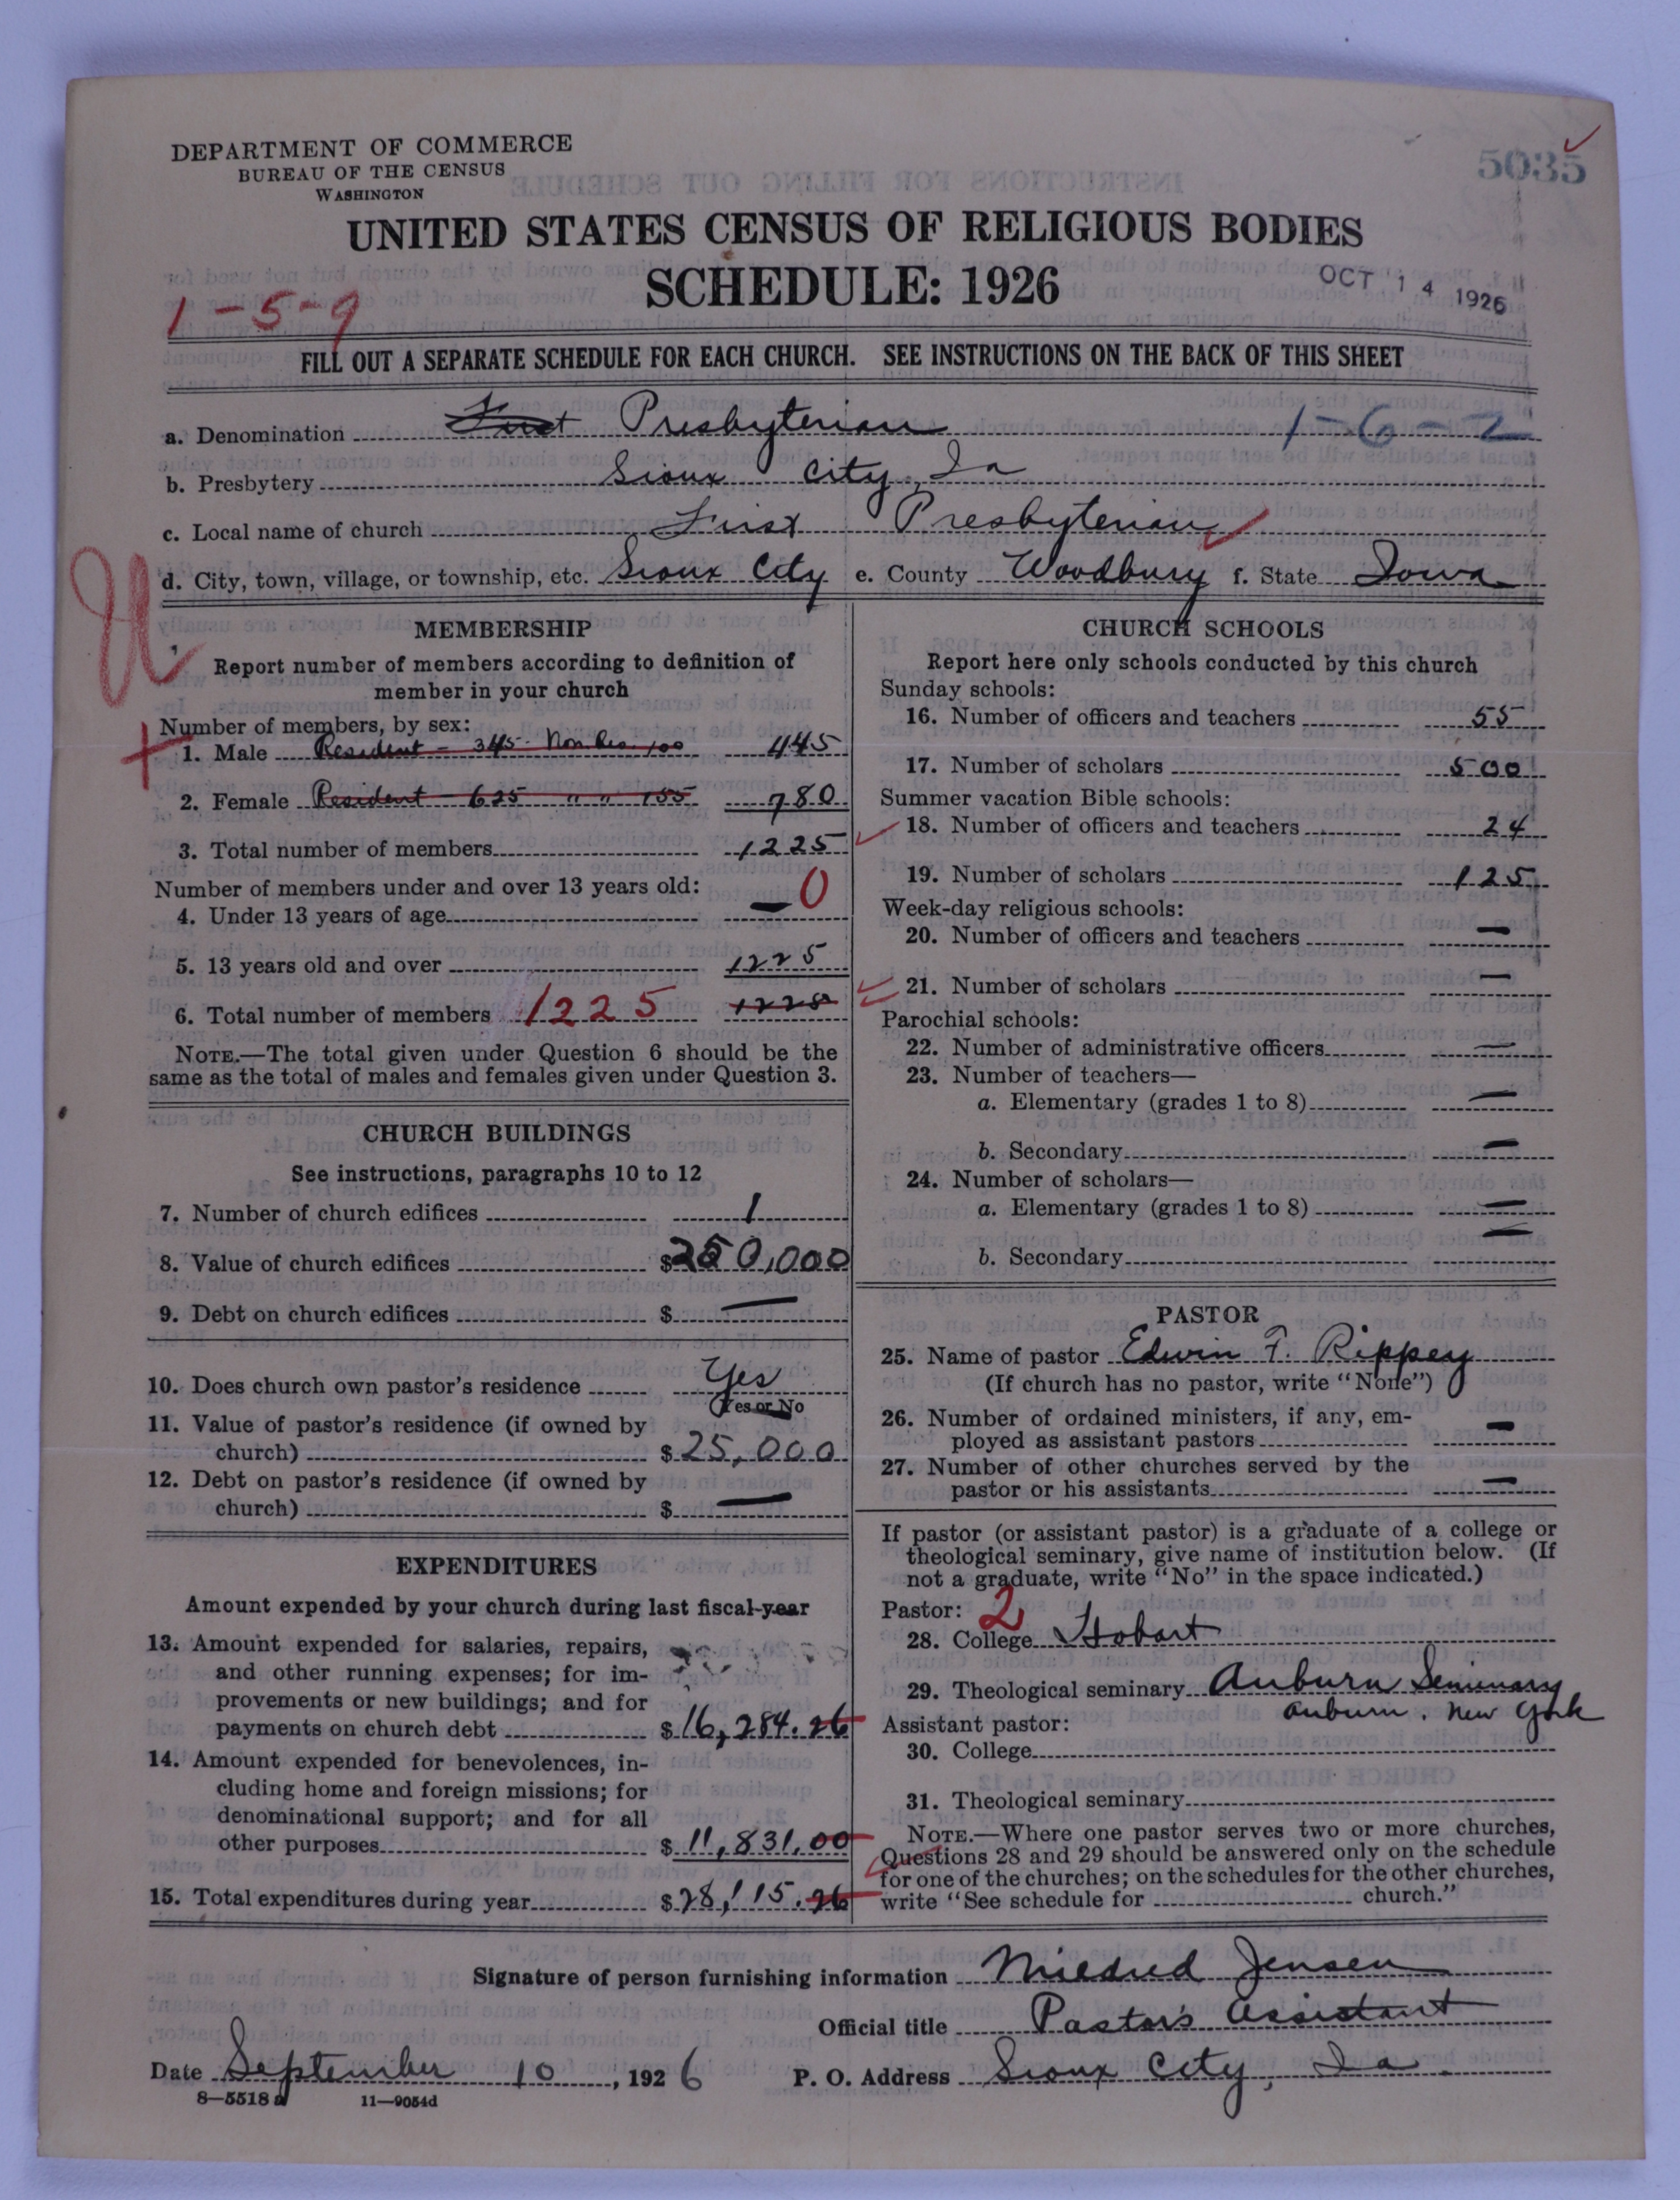 DEPARTMENT OF COMMERCE
BUREAU OF THE CENSUS
WASHINGTON
5035
UNITED STATES CENSUS OF RELIGIOUS BODIES
SCHEDULE: 1926
OCT 14 1926
1-5-9
FILL OUT A SEPARATE SCHEDULE FOR EACH CHURCH. SEE INSTRUCTIONS ON THE BACK OF THIS SHEET
a. Denomination First Presbyterian 1-6-2
b. Presbytery Sioux City, Ia
c. Local name of church First Presbyterian
d. City, town, village, or township, etc. Sioux City e. County Woodbury f. State Iowa
U
MEMBERSHIP
Report number of members according to definition of
member in your church
Number of members, by sex:
1. Male Resident - 345 Non Res. 100 445
2. Female Resident 625 " " 155 780
3. Total number of members 1225
Number of members under and over 13 years old:
4. Under 13 years of age — 0
5. 13 years old and over 1225
6. Total number of members 1225 1225
NOTE.—The total given under Question 6 should be the
same as the total of males and females given under Question 3.
CHURCH BUILDINGS
See instructions, paragraphs 10 to 12
7. Number of church edifices 1
8. Value of church edifices $250,000
9. Debt on church edifices $ —
10. Does church own pastor's residence Yes
(Yes or No
11. Value of pastor's residence (if owned by
church) $25,000
12. Debt on pastor's residence (if owned by
church) $ —
EXPENDITURES
Amount expended by your church during last fiscal year
13. Amount expended for salaries, repairs,
and other running expenses; for im-
provements or new buildings; and for
payments on church debt $16,284.26
14. Amount expended for benevolences, in-
cluding home and foreign missions; for
denominational support; and for all
other purposes $11,831.00
15. Total expenditures during year $28,115.26
CHURCH SCHOOLS
Report here only schools conducted by this church
Sunday schools:
16. Number of officers and teachers 55
17. Number of scholars 500
Summer vacation Bible schools:
18. Number of officers and teachers 24
19. Number of scholars 125
Week-day religious schools:
20. Number of officers and teachers —
21. Number of scholars —
Parochial schools:
22. Number of administrative officers —
23. Number of teachers—
a. Elementary (grades 1 to 8) —
b. Secondary —
24. Number of scholars—
a. Elementary (grades 1 to 8) —
b. Secondary —
PASTOR
25. Name of pastor Edwin F. Rippey
(If church has no pastor, write "None")
26. Number of ordained ministers, if any, em-
ployed as assistant pastors —
27. Number of other churches served by the
pastor or his assistants —
If pastor (or assistant pastor) is a graduate of a college or
theological seminary, give name of institution below. (If
not a graduate, write "No" in the space indicated.)
Pastor: 2
28. College Hobart
29. Theological seminary Auburn Seminary
Auburn, New York
Assistant pastor:
30. College
31. Theological seminary
NOTE.—Where one pastor serves two or more churches,
Questions 28 and 29 should be answered only on the schedule
for one of the churches; on the schedules for the other churches,
write "See schedule for church."
Signature of person furnishing information Mildred Jensen
Official title Pastor's Assistant
Date September 10, 1926 P. O. Address Sioux City, Ia
8—5518 a 11—9054d